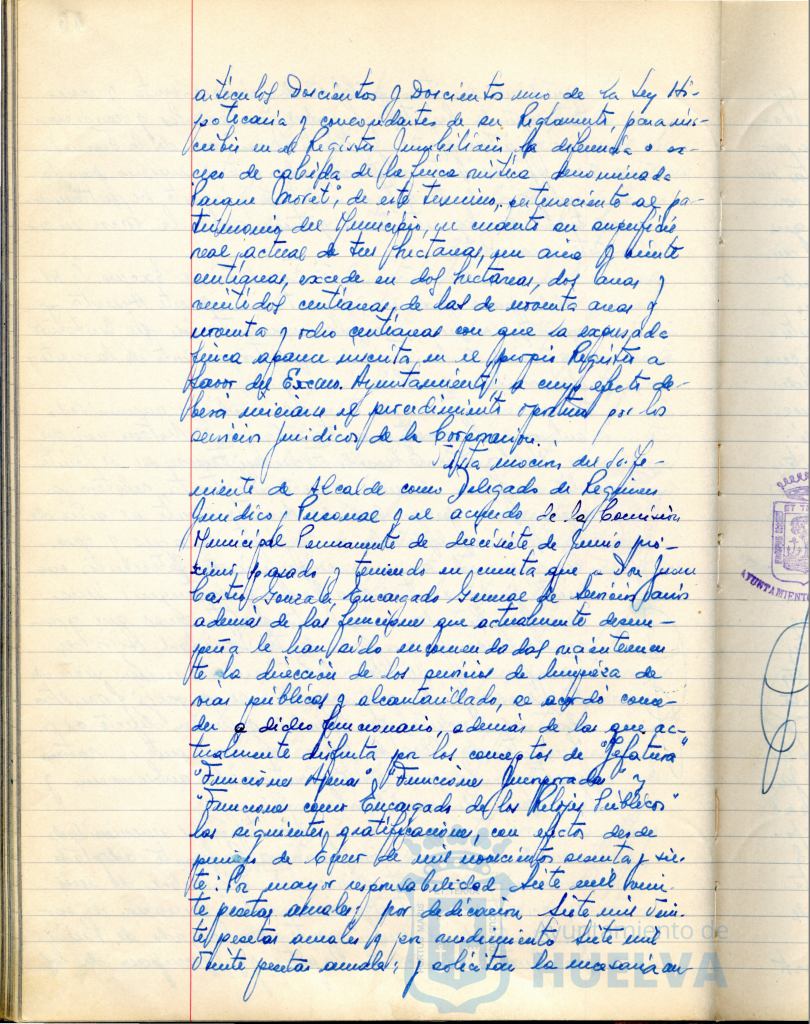 artículos Doscientos y Doscientos uno de la Ley Hi-
potecaria y concordantes de su Reglamento, para ins-
cribir en el Registro Inmobiliario la diferencia o ex-
ceso de cabida de la finca rústica denominada
"Parque Moret", de este termino, perteneciente al pa-
trimonio del Municipio, en cuanto su superficie
real y actual de tres hectareas, un area y veinte
centiareas, excede en dos hectareas, dos areas y
veintidos centiareas, de las de noventa areas y
noventa y ocho centiareas con que la expresada
finca aparece inscrita en el propio Registro a
favor del Excmo. Ayuntamiento; a cuyo efecto de-
berá iniciarse el procedimiento oportuno por los
servicios jurídicos de la Corporación.
Vista moción del Sr. Te-
niente de Alcalde como Delegado de Regimen
Jurídico y Personal y el acuerdo de la Comisión
Municipal Permanente de diecisiete de Junio pró-
ximo pasado y teniendo en cuenta que a Don Juan
Castro Gonzalez, Encargado General de Servicios varios
además de las funciones que actualmente desem-
peña le han sido encomendadas recientemen-
te la dirección de los servicios de limpieza de
vias públicas y alcantarillado, se acordó conce-
der a dicho funcionario, además de las que ac-
tualmente disfruta por los conceptos de "Jefatura"
"Funciones Ajenas" y "Funciones" y
"Funciones como Encargado de los Relojes Públicos"
las siguientes gratificaciones con efectos desde
primero de Enero de mil novecientos sesenta y sie-
te: Por mayor responsabilidad siete mil vein-
te pesetas anuales; por dedicación siete mil vein-
te pesetas anuales y por rendimiento siete mil
veinte pesetas anuales; y solicitar la necesaria au-
AYUNTAMIENTO
Ayuntamiento de
HUELVA